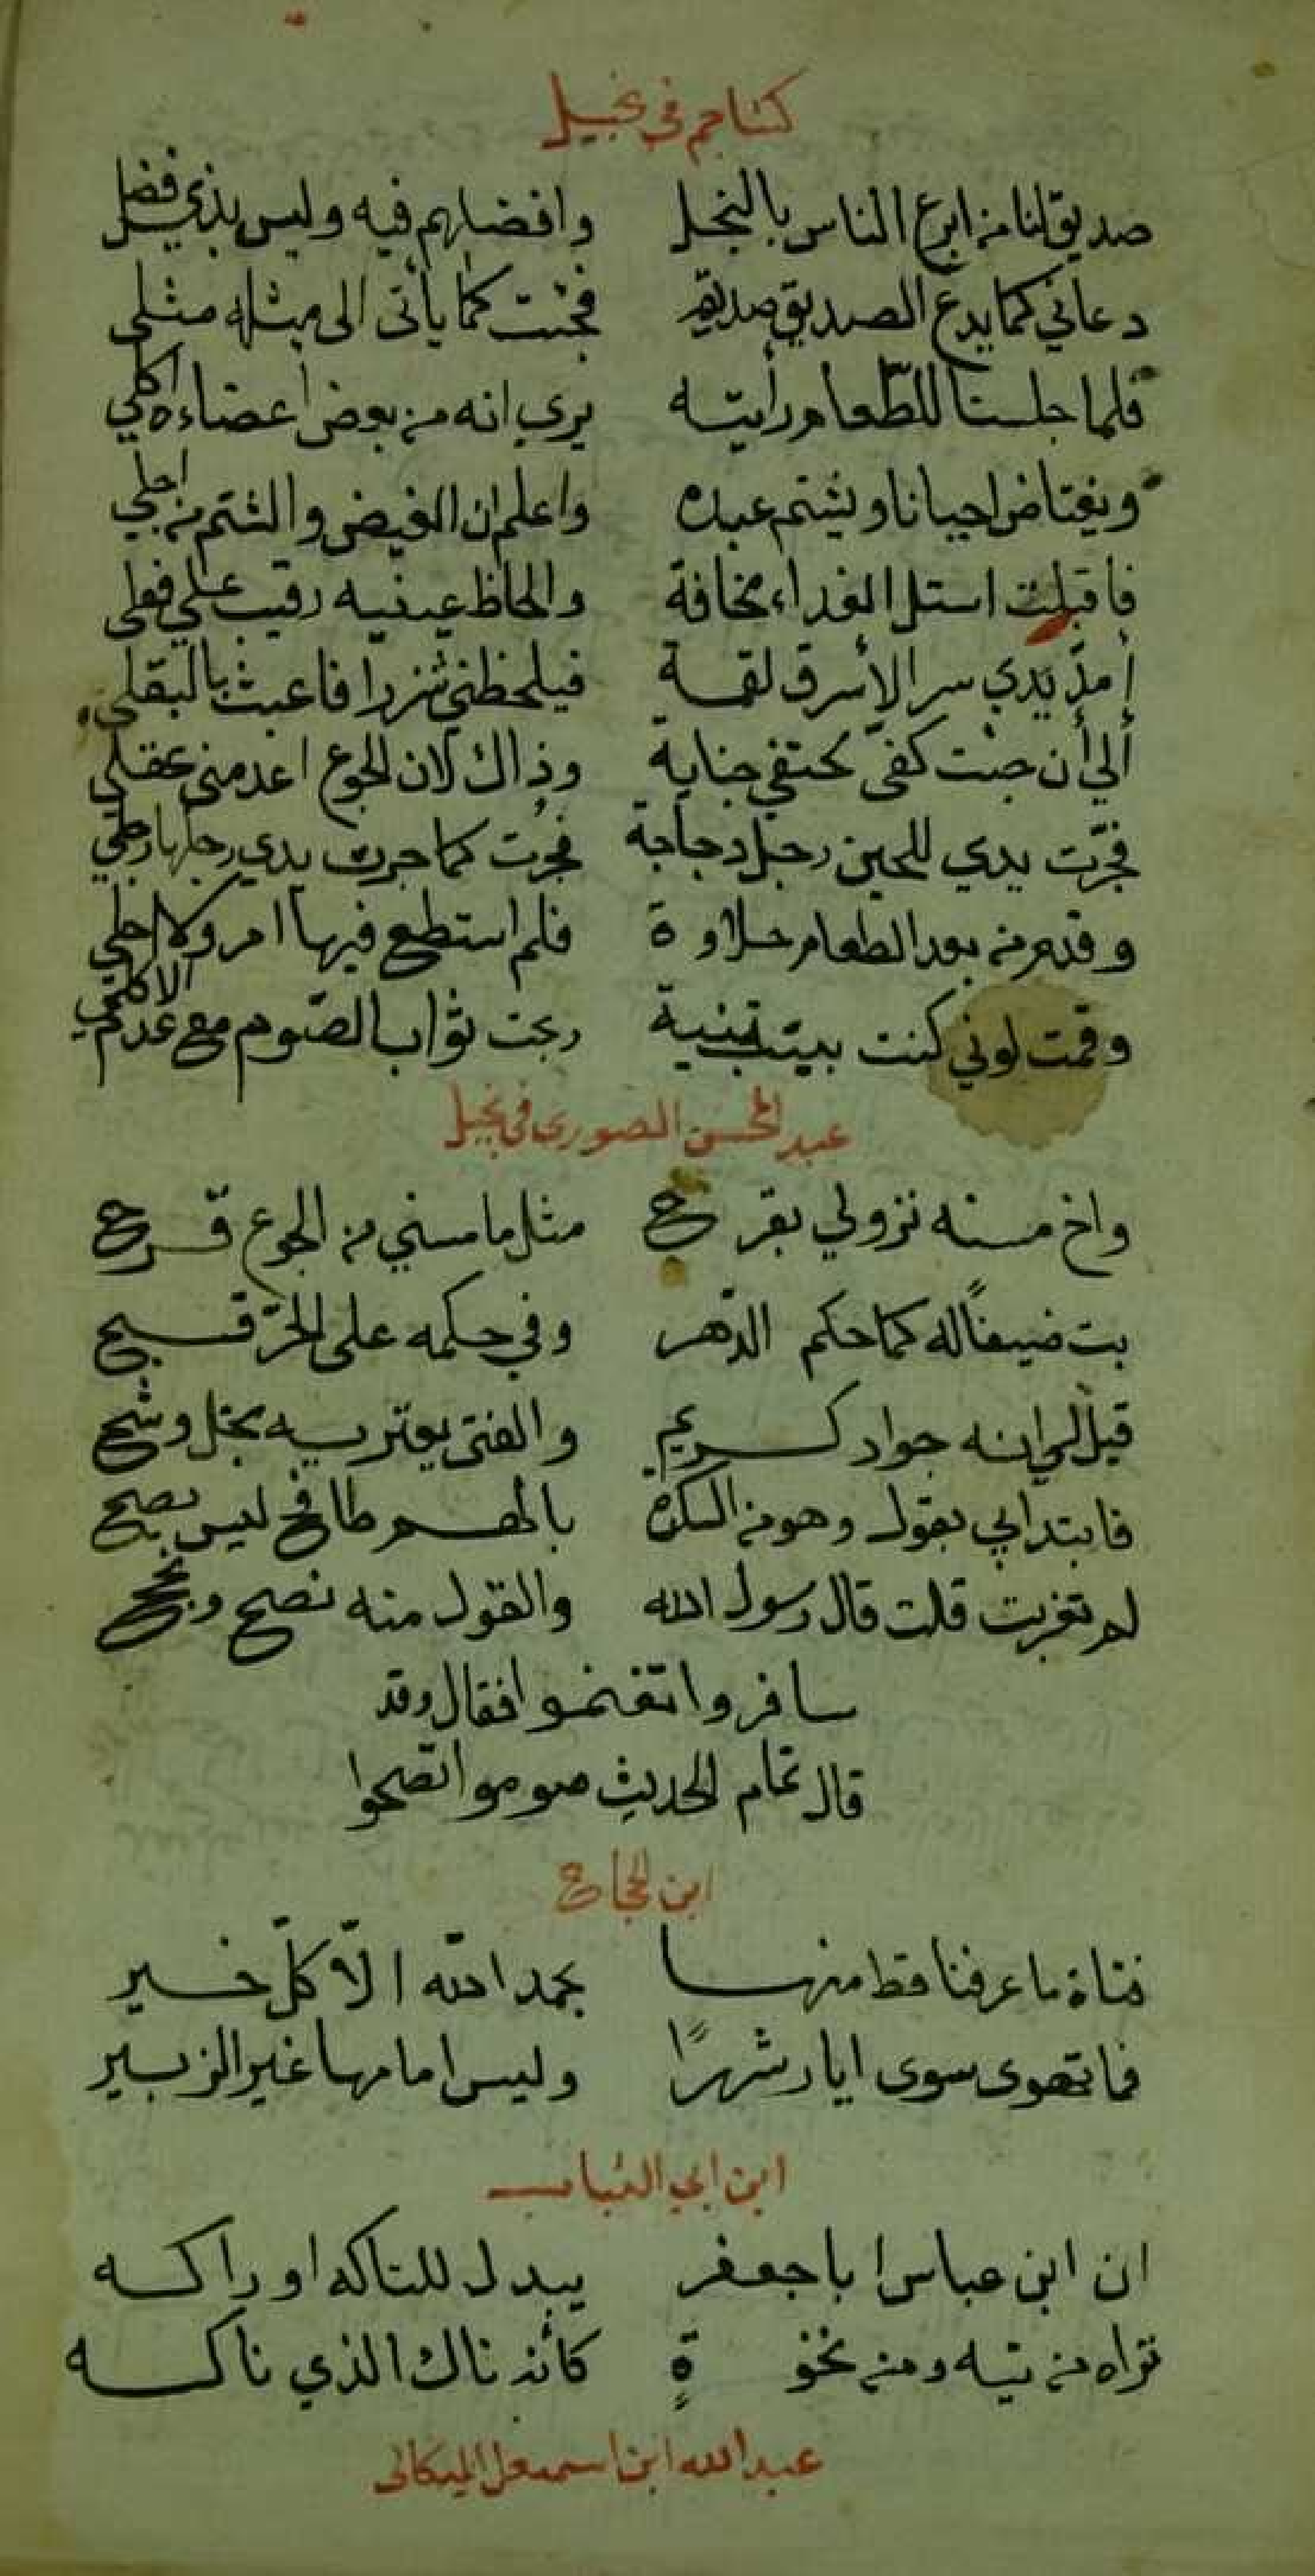 كشاجم في بخيل
صديق لنا من ابرع الناس بالبخل وافضلهم فيه وليس بذي فضل
دعاني كما يدع الصديق صديقه فجئت كما يأتى الى مثله مثلى
فلما جلسنا للطعام رأيته يرى انه من بعض اعضاءه اكلي
ويغتاض احيانا ويشتم عبده واعلم ان الغيض والشتم من اجلي
فاقبلت استل الغداء مخافة والحاظ عينيه رقيب علي فعلى
أمد يدي سرا لأسرق لقمة فيلحظني شزرا فاعبث بالبقلى
ألي أن جنت كفى لحتفي جناية وذاك لان الجوع اعدمنى عقلي
فجرّت يدي للحين رجل دجاجة فجرت كما جرت يدي رجلها رجلي
وقدم من بعد الطعام حلاوة فلم استطع فيها امر ولا احلي
وقمت لوني كنت بيتت نية ربحت ثواب الصّوم مع عدم الاكل
عبد المحسن الصورى في بخيل
واخ مسنه نزولي بقرح مثل ما مسني من الجوع قرح
بت ضيفاً له كما حكم الدّهر وفي حكمه على الحرّ قبح
قيل لي انه جواد كريم والفتى يعتريه بخل وشح
فابتداني يقول وهو من السكرة بالهم طافح ليس يصح
لم تغربت قلت قال رسول الله والقول منه نصح ونجح
سافروا تغنموا فقال وقد
قال تمام الحديث صوموا تصحوا
ابن الحجاج
فتاة ما عرفنا قط منها بحمد الله الّا كلّ خير
فما تهوى سوى ايار شهرًا وليس امامها غير الزبير
ابن ابي البناب
ان ابن عباس ابا جعفر يبدل للناكه اوراكه
تراه من تيه ومن نخوةٍ كأنه ناك الذي ناكه
عبد الله ابن اسمعل الميكالى